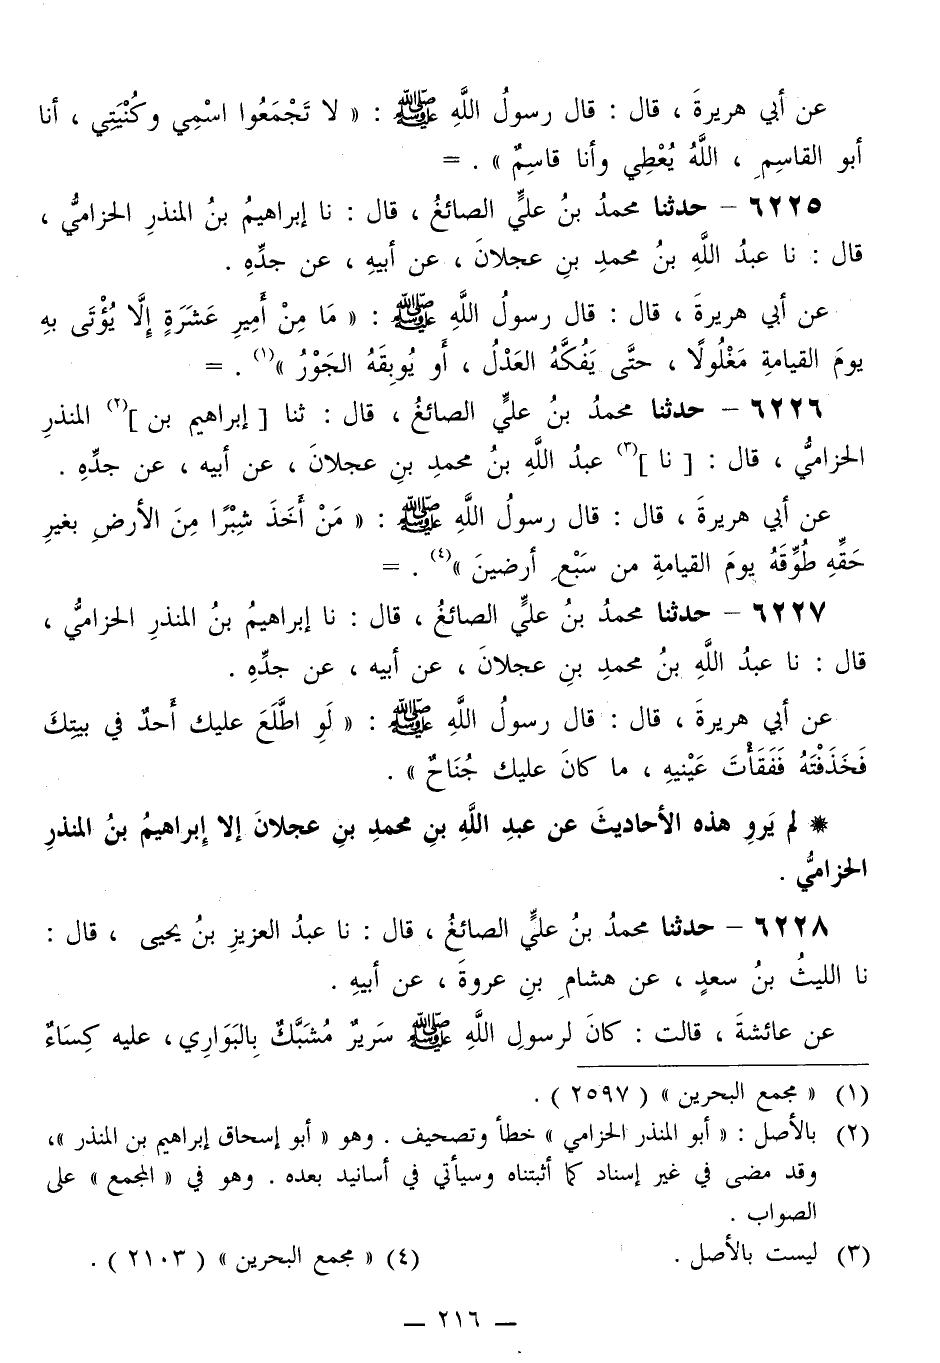 عن أبي هريرةَ ، قال : قال رسولُ اللَّهِ ﷺ : « لا تَجْمَعُوا اسْمِي وكُنْيَتِي ، أنا
أبو القاسِمِ ، اللَّهُ يُعْطِي وأنا قاسِمٌ » . =
٦٢٢٥ – حدثنا محمدُ بنُ عليٍّ الصائغُ ، قال : نا إبراهيمُ بنُ المنذرِ الحزاميُّ ،
قال : نا عبدُ اللَّهِ بنُ محمدِ بنِ عجلانَ ، عن أبيهِ ، عن جدِّهِ .
عن أبي هريرةَ ، قال : قال رسولُ اللَّهِ ﷺ : « مَا مِنْ أَمِيرِ عَشَرَةٍ إِلَّا يُؤْتَى بهِ
يومَ القيامةِ مَغْلُولًا ، حتَّى يَفُكَّهُ العَدْلُ ، أَو يُوبِقَهُ الجَوْرُ »(١) . =
٦٢٢٦ – حدثنا محمدُ بنُ عليٍّ الصائغُ ، قال : ثنا [ إبراهيم بن ](٢) المنذرِ
الحزاميُّ ، قال : [ نا ](٣) عبدُ اللَّهِ بنُ محمدِ بنِ عجلانَ ، عن أبيه ، عن جدِّهِ .
عن أبي هريرةَ ، قال : قال رسولُ اللَّهِ ﷺ : « مَنْ أَخَذَ شِبْرًا مِنَ الأرضِ بغيرِ
حَقِّهِ طُوِّقَهُ يومَ القيامةِ من سَبْعِ أرضينَ »(٤) . =
٦٢٢٧ – حدثنا محمدُ بنُ عليٍّ الصائغُ ، قال : نا إبراهيمُ بنُ المنذرِ الحزاميُّ ،
قال : نا عبدُ اللَّهِ بنُ محمدِ بنِ عجلانَ ، عن أبيه ، عن جدِّهِ .
عن أبي هريرةَ ، قال : قال رسولُ اللَّهِ ﷺ : « لَوِ اطَّلَعَ عليك أَحدٌ في بيتِكَ
فَخَذَفْتَهُ فَفَقَأْتَ عَيْنيهِ ، ما كانَ عليك جُنَاحٌ » .
✵ لم يَروِ هذه الأحاديثَ عن عبدِ اللَّهِ بنِ محمدِ بنِ عجلانَ إلا إِبراهيمُ بنُ المنذرِ
الحزاميُّ .
٦٢٢٨ – حدثنا محمدُ بنُ عليٍّ الصائغُ ، قال : نا عبدُ العزيزِ بنُ يحيى ، قال :
نا الليثُ بنُ سعدٍ ، عن هشامِ بنِ عروةَ ، عن أبيهِ .
عن عائشةَ ، قالت : كانَ لرسولِ اللَّهِ ﷺ سَريرٌ مُشَبَّكٌ بِالبَوَارِي ، عليه كِسَاءٌ
(١) « مجمع البحرين » ( ٢٥٩٧ ) .
(٢) بالأصل : « أبو المنذر الحزامي » خطأ وتصحيف . وهو « أبو إسحاق إبراهيم بن المنذر »،
وقد مضى في غير إسناد كما أثبتناه وسيأتي في أسانيد بعده . وهو في « المجمع » على
الصواب .
(٣) ليست بالأصل . (٤) « مجمع البحرين » ( ٢١٠٣ ) .
— ٢١٦ —